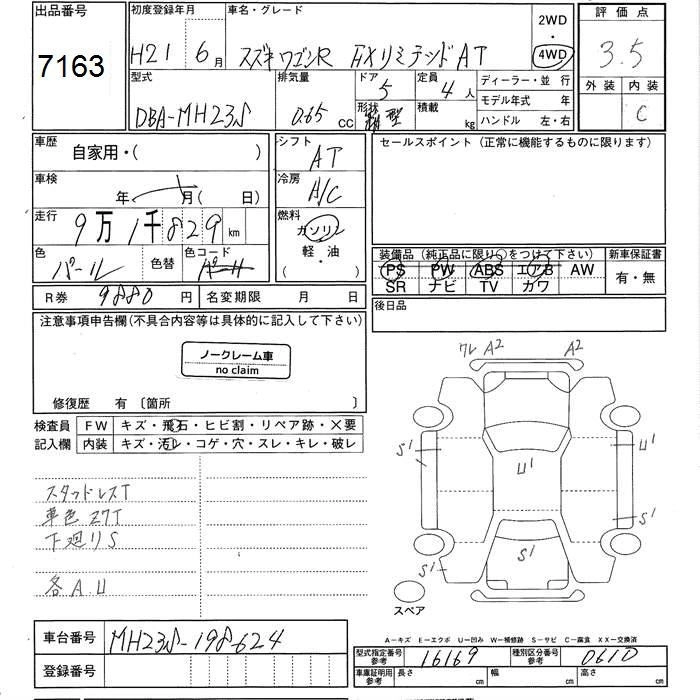 出品番号 初度登録年月 車名・グレード 2WD・4WD 評価点
7163 H21 6月 スズキワゴンR FXリミテッド AT 3.5
型式 排気量 ドア 定員 ディーラー・並行 外装 内装
DBA-MH23S 0.65 cc 5 4人 モデル年式 年 C
形状 箱型 積載 kg ハンドル 左・右
車歴 自家用・( ) シフト AT セールスポイント (正常に機能するものに限ります)
車検 年 月( 日) 冷房 A/C
走行 9万1千829km 燃料 ガソリン
軽・油
( )
色 パール 色替 色コード
装備品 (純正品に限り○をつけて下さい) 新車保証書
PS PW ABS エアB AW 有・無
SR ナビ TV カワ
R券 9880円 名変期限 月 日 後日品
注意事項申告欄(不具合内容等は具体的に記入して下さい)
ノークレーム車
no claim
修復歴 有 〔箇所 〕
検査員 FW キズ・飛石・ヒビ割・リペア跡・X要
記入欄 内装 キズ・汚レ・コゲ・穴・スレ・キレ・破レ
ワレ A2 A2
S1 U1
U1
S1
S1 S1
スペア
スタッドレスT
車色 Z7T
下廻りS
各A.U
A-キズ E-エクボ U-凹み W-補修跡 S-サビ C-腐食 XX-交換済
車台番号 MH23S-198624
登録番号
型式指定番号 参考 16169 種別区分番号 参考 0610
車庫証明用 参考 長さ cm 幅 cm 高さ cm